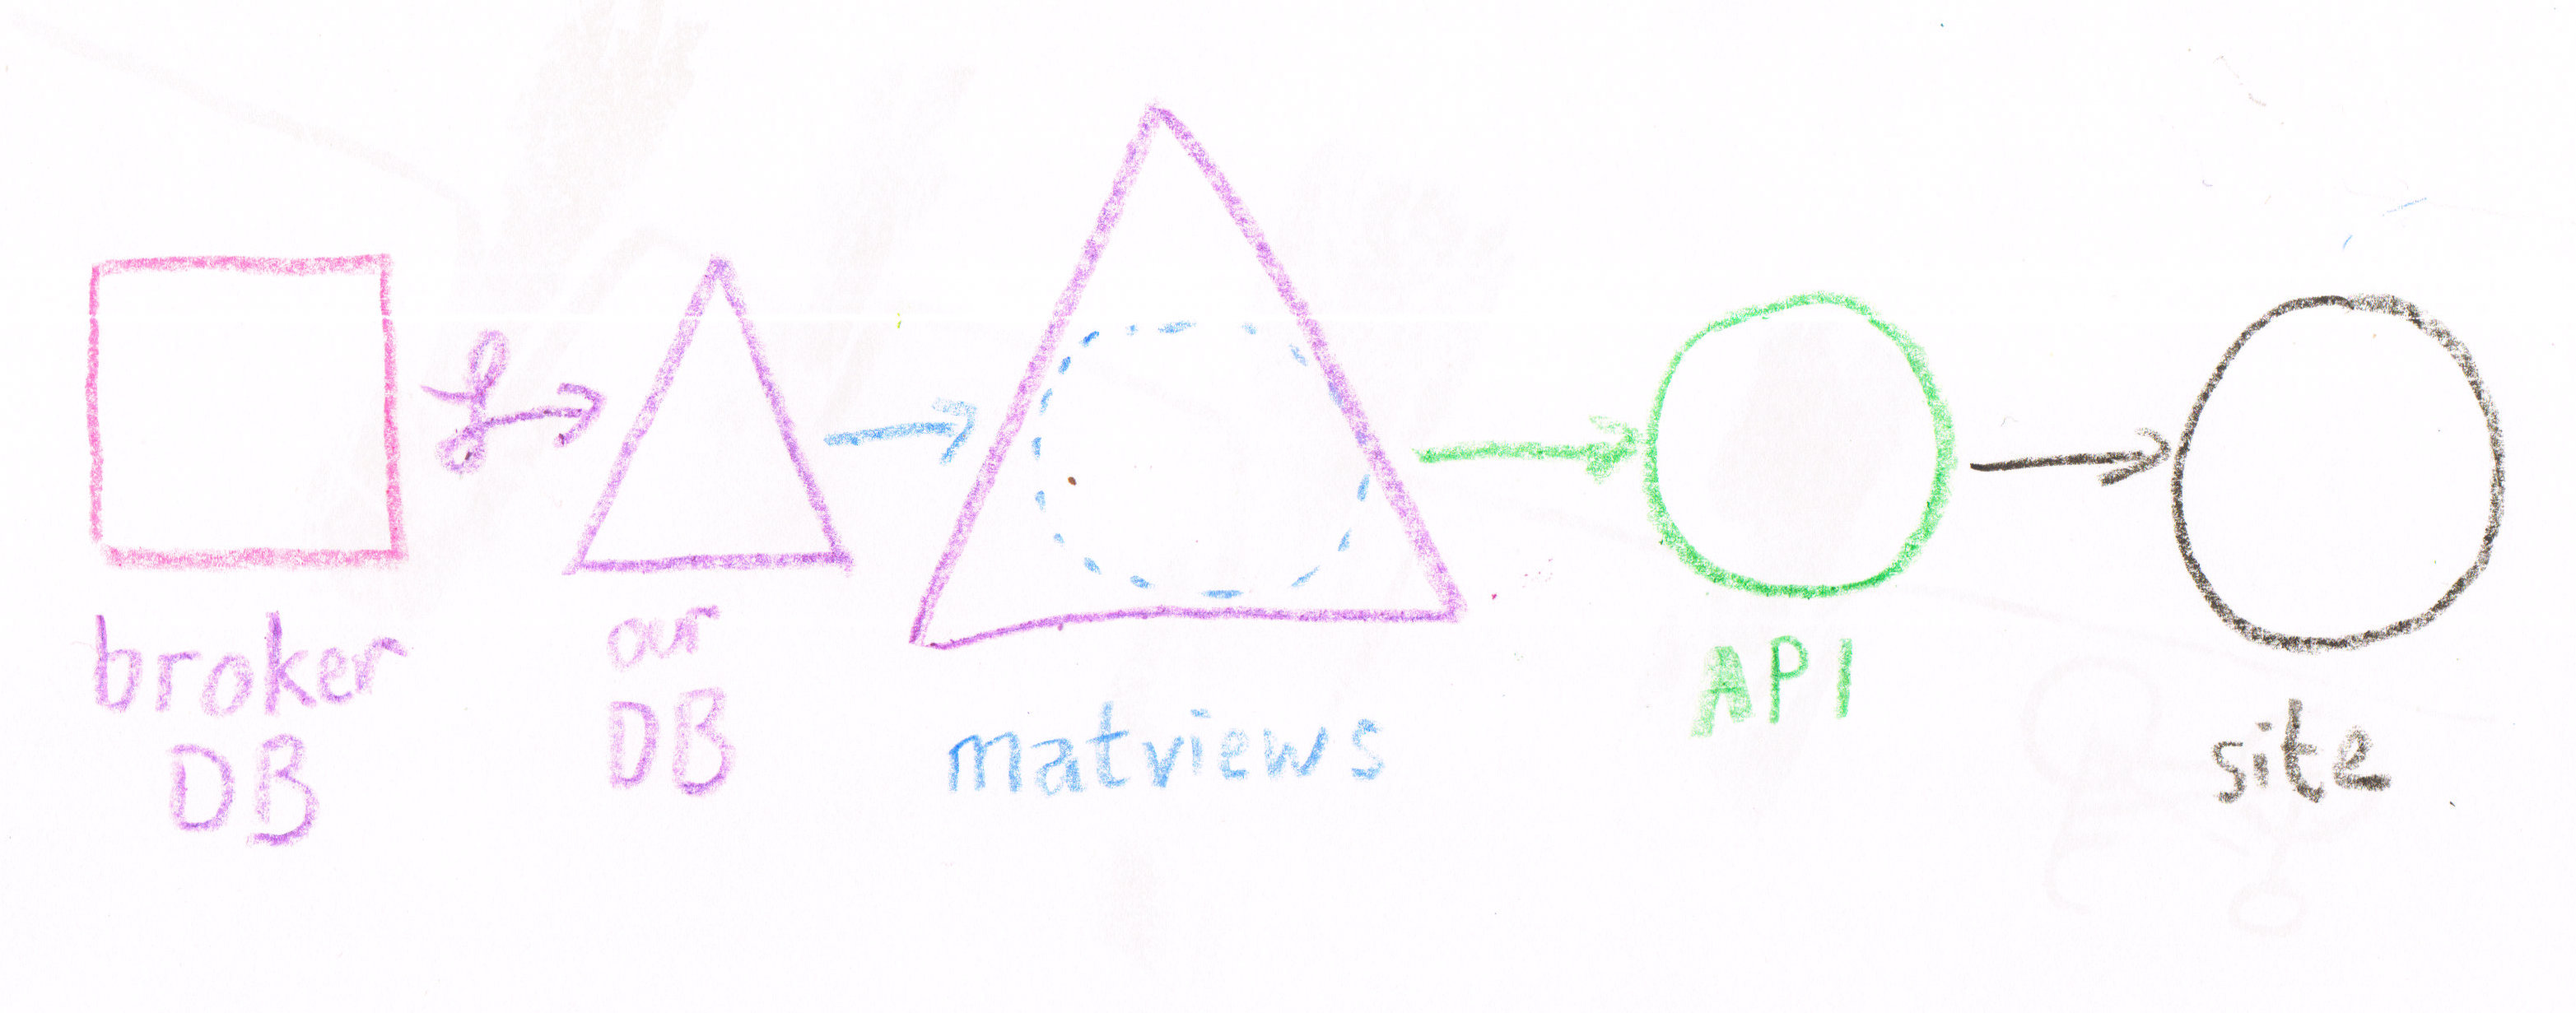 f
broker
DB
our
DB
matviews
API
site